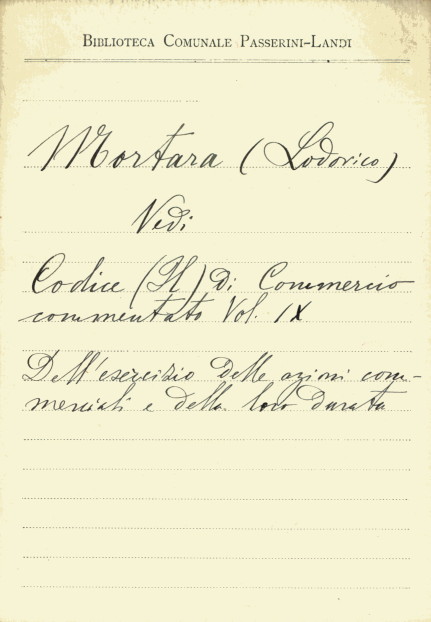 BIBLIOTECA COMUNALE PASSERINI-LANDI
Mortara (Lodovico)
Vedi
Codice (Il) di Commercio
commentato Vol. IX
Dell'esercizio delle azioni com-
merciali e della loro durata